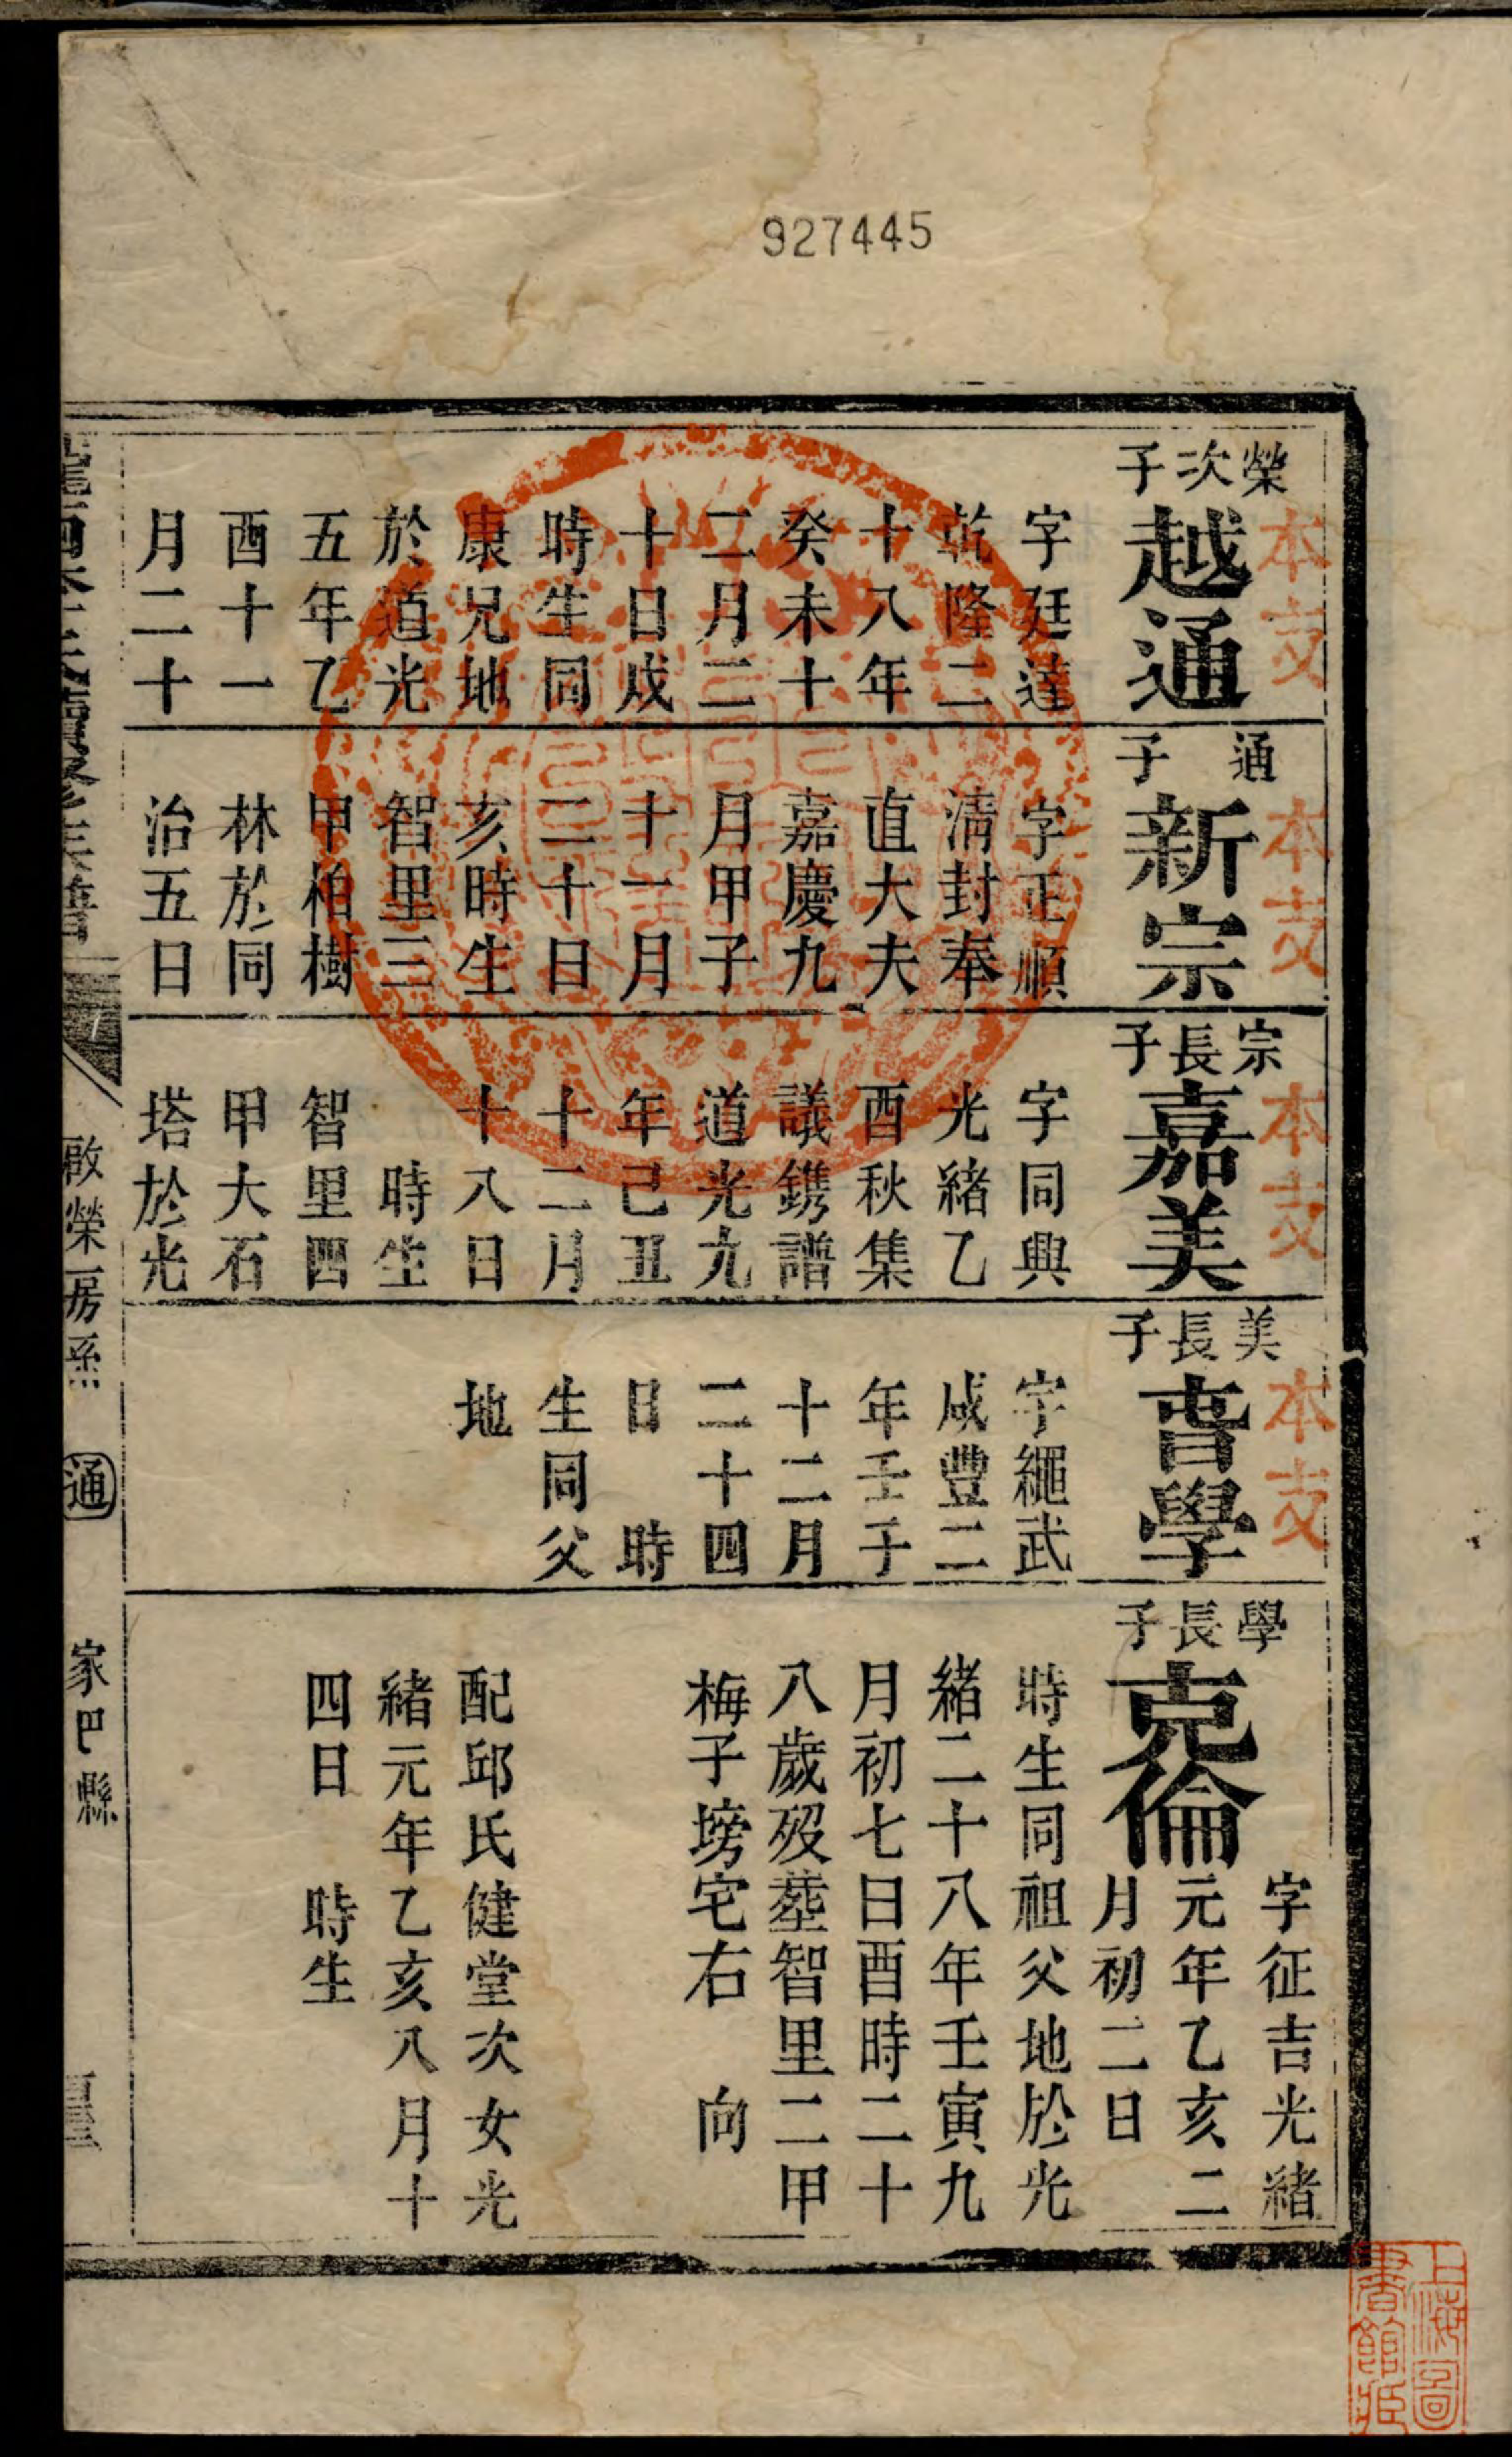 927445
本支
榮次子
越通
字廷達
乾隆二
十八年
癸未十
二月二
十日戌
時生同
康兄地
於道光
五年乙
酉十一
月二十
本支
通子
新宗
字正順
淸封奉
直大夫
嘉慶九
月甲子
十一月
二十日
亥時生
智里三
甲柏樹
林於同
治五日
本支
宗長子
嘉美
字同興
光緒乙
酉秋集
議鐫譜
道光九
年己丑
十二月
十八日
時生
智里四
甲大石
塔於光
本支
美長子
學
字繩武
咸豐二
年壬子
十二月
二十四
日 時
生同父
地
學長子
克倫
字征吉光緒
元年乙亥二
月初二日
時生同祖父地於光
緒二十八年壬寅九
月初七日酉時二十
八歲歿塟智里二甲
梅子塝宅右 向
配邱氏健堂次女光
緒元年乙亥八月十
四日 時生
啟榮房系
通
家巴縣
上海圖
書館